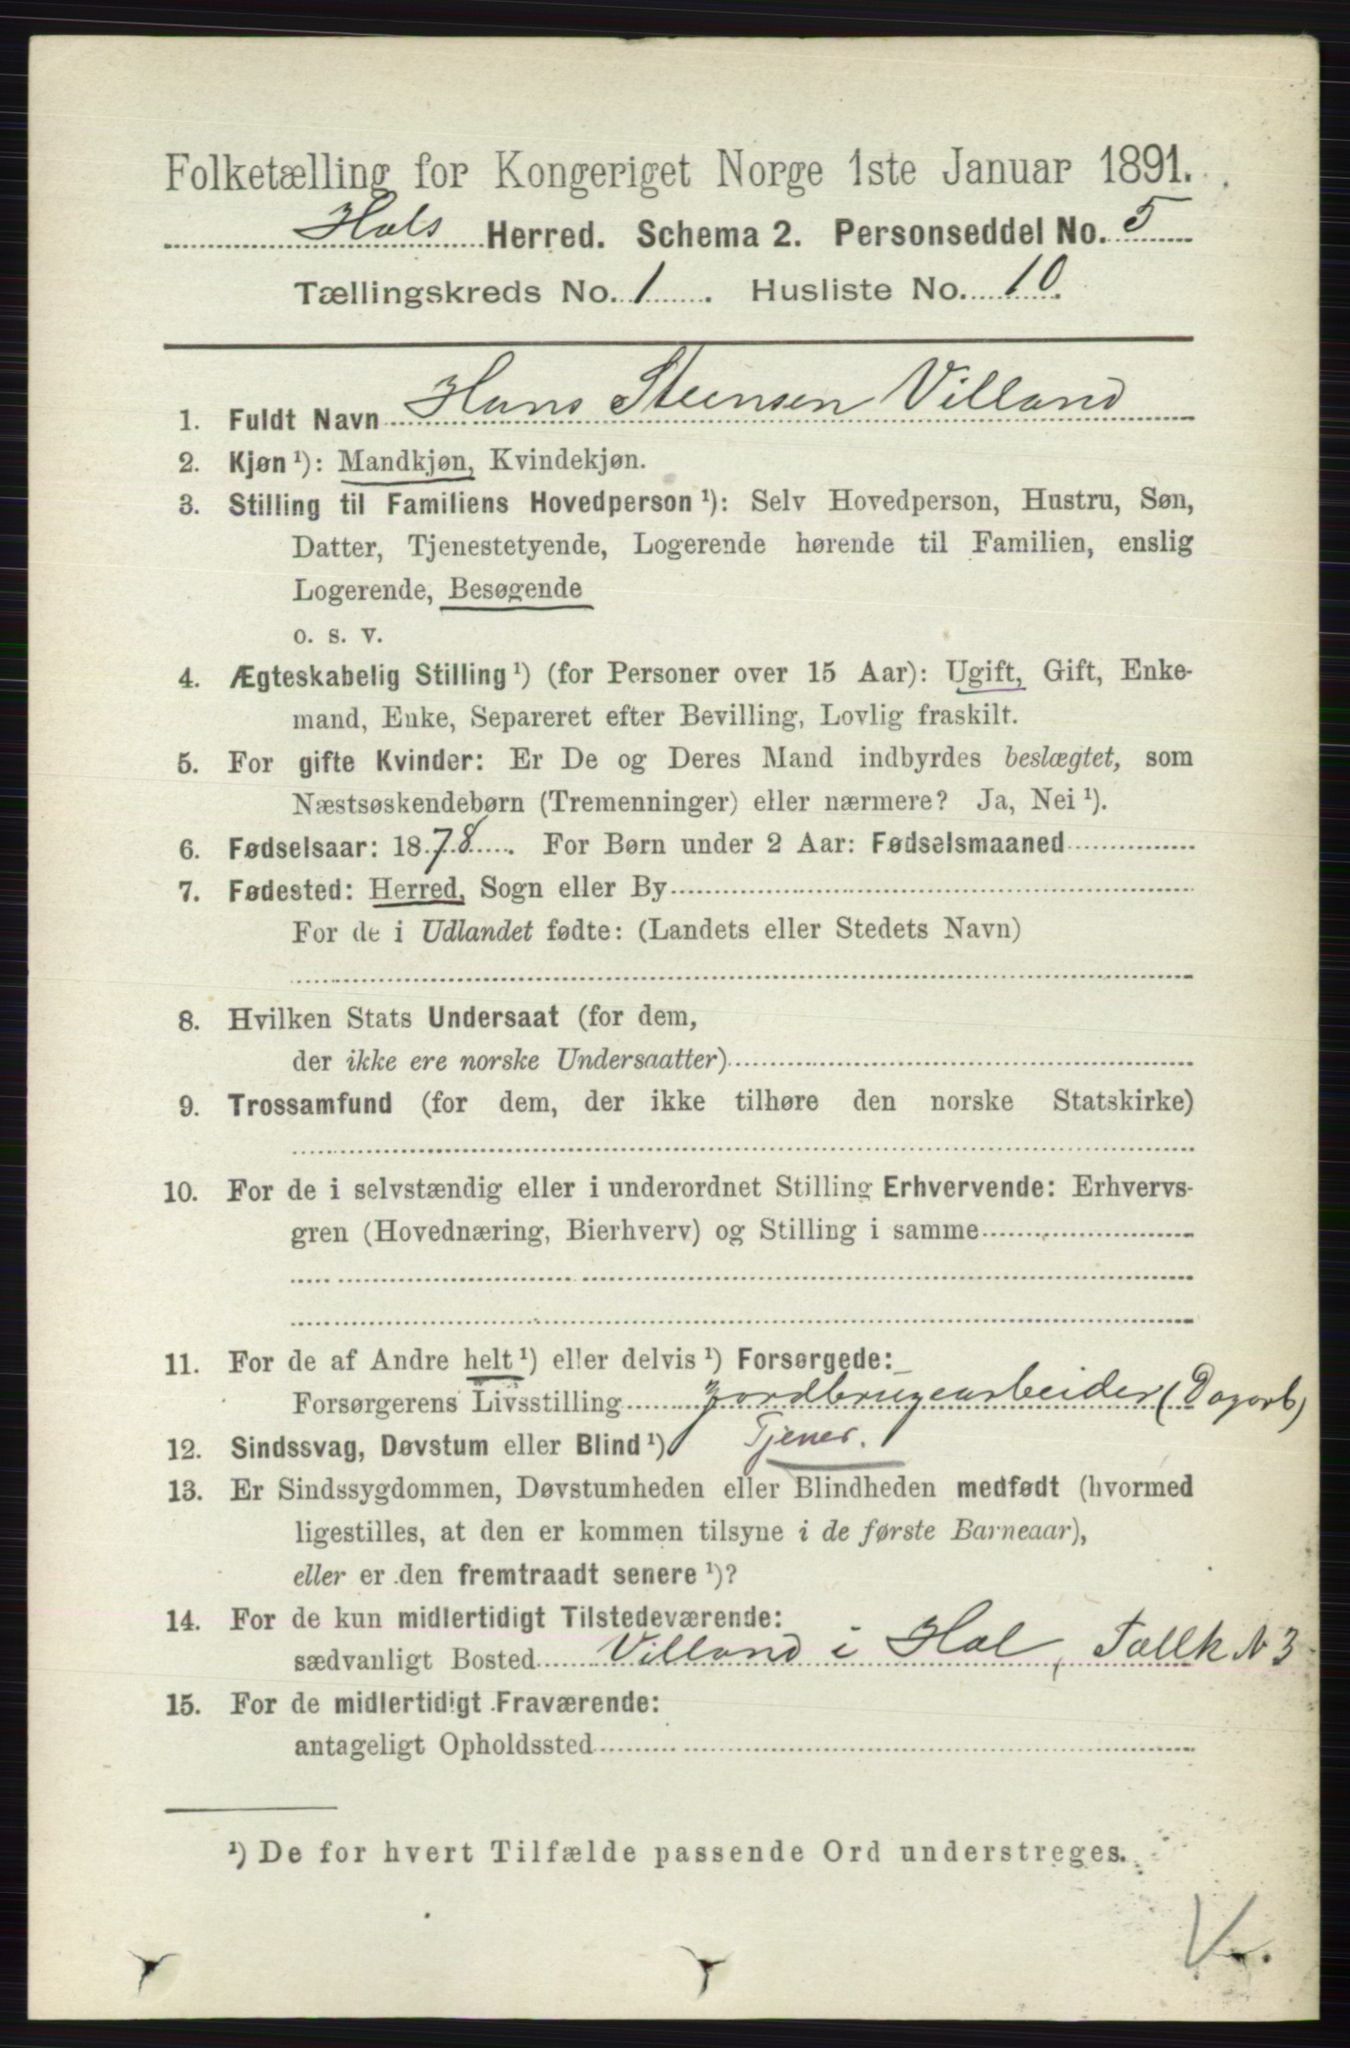 Folketælling for Kongeriget Norge 1ste Januar 1891.
Hols Herred. Schema 2. Personseddel No. 5
Tællingskreds No. 1. Husliste No. 10.
1. Fuldt Navn Hans Steensen Villand
2. Kjøn ¹): Mandkjøn, Kvindekjøn.
3. Stilling til Familiens Hovedperson ¹): Selv Hovedperson, Hustru, Søn,
Datter, Tjenestetyende, Logerende hørende til Familien, enslig
Logerende, Besøgende
o. s. v.
4. Ægteskabelig Stilling ¹) (for Personer over 15 Aar): Ugift, Gift, Enke-
mand, Enke, Separeret efter Bevilling, Lovlig fraskilt.
5. For gifte Kvinder: Er De og Deres Mand indbyrdes beslægtet, som
Næstsøskendebørn (Tremenninger) eller nærmere? Ja, Nei ¹).
6. Fødselsaar: 1878. For Børn under 2 Aar: Fødselsmaaned
7. Fødested: Herred, Sogn eller By
For de i Udlandet fødte: (Landets eller Stedets Navn)
8. Hvilken Stats Undersaat (for dem,
der ikke ere norske Undersaatter)
9. Trossamfund (for dem, der ikke tilhøre den norske Statskirke)
10. For de i selvstændig eller i underordnet Stilling Erhvervende: Erhvervs-
gren (Hovednæring, Bierhverv) og Stilling i samme
11. For de af Andre helt ¹) eller delvis ¹) Forsørgede:
Forsørgerens Livsstilling Jordbrugearbeider (Dagarb)
12. Sindssvag, Døvstum eller Blind ¹) Tjener.
13. Er Sindssygdommen, Døvstumheden eller Blindheden medfødt (hvormed
ligestilles, at den er kommen tilsyne i de første Barneaar),
eller er den fremtraadt senere ¹)?
14. For de kun midlertidigt Tilstedeværende:
sædvanligt Bosted Villand i Hol, Tællk N 3
15. For de midlertidigt Fraværende:
antageligt Opholdssted
¹) De for hvert Tilfælde passende Ord understreges.
V.